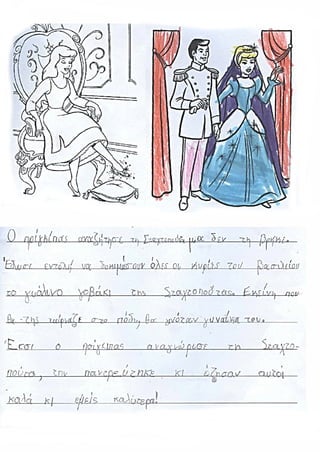 Ο πρίγκιπας αναζήτησε τη Σταχτοπούτα μα δεν τη βρήκε.
Έδωσε εντολή να δοκιμάσουν όλες οι κυρίες του βασιλείου
το γυάλινο γοβάκι της Σταχτοπούτας. Εκείνη που
θα της ταίριαζε στο πόδι, θα γινόταν γυναίκα του.
Έτσι ο πρίγκιπας αναγνώρισε τη Σταχτο-
πούτα, την παντρεύτηκε κι έζησαν αυτοί
καλά κι εμείς καλύτερα!